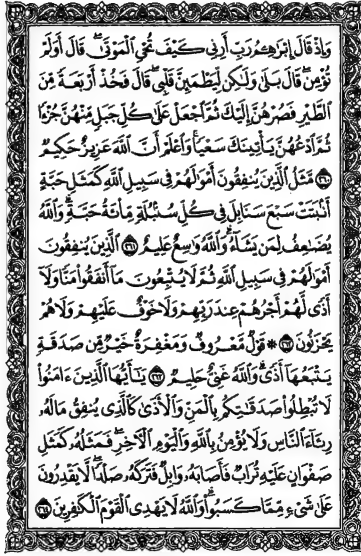 وَإِذْ قَالَ إِبْرَٰهِـۧمُ رَبِّ أَرِنِى كَيْفَ تُحْىِ ٱلْمَوْتَىٰ ۖ قَالَ أَوَلَمْ
تُؤْمِن ۖ قَالَ بَلَىٰ وَلَـٰكِن لِّيَطْمَئِنَّ قَلْبِى ۖ قَالَ فَخُذْ أَرْبَعَةً مِّنَ
ٱلطَّيْرِ فَصُرْهُنَّ إِلَيْكَ ثُمَّ ٱجْعَلْ عَلَىٰ كُلِّ جَبَلٍ مِّنْهُنَّ جُزْءًا
ثُمَّ ٱدْعُهُنَّ يَأْتِينَكَ سَعْيًا ۚ وَٱعْلَمْ أَنَّ ٱللَّهَ عَزِيزٌ حَكِيمٌ
٢٦٠ مَّثَلُ ٱلَّذِينَ يُنفِقُونَ أَمْوَٰلَهُمْ فِى سَبِيلِ ٱللَّهِ كَمَثَلِ حَبَّةٍ
أَنۢبَتَتْ سَبْعَ سَنَابِلَ فِى كُلِّ سُنۢبُلَةٍ مِّا۟ئَةُ حَبَّةٍ ۗ وَٱللَّهُ
يُضَـٰعِفُ لِمَن يَشَآءُ ۗ وَٱللَّهُ وَٰسِعٌ عَلِيمٌ ٢٦١ ٱلَّذِينَ يُنفِقُونَ
أَمْوَٰلَهُمْ فِى سَبِيلِ ٱللَّهِ ثُمَّ لَا يُتْبِعُونَ مَآ أَنفَقُوا۟ مَنًّا وَلَآ
أَذًى ۙ لَّهُمْ أَجْرُهُمْ عِندَ رَبِّهِمْ وَلَا خَوْفٌ عَلَيْهِمْ وَلَا هُمْ
يَحْزَنُونَ ٢٦٢ ۞ قَوْلٌ مَّعْرُوفٌ وَمَغْفِرَةٌ خَيْرٌ مِّن صَدَقَةٍ
يَتْبَعُهَآ أَذًى ۗ وَٱللَّهُ غَنِىٌّ حَلِيمٌ ٢٦٣ يَـٰٓأَيُّهَا ٱلَّذِينَ ءَامَنُوا۟
لَا تُبْطِلُوا۟ صَدَقَـٰتِكُم بِٱلْمَنِّ وَٱلْأَذَىٰ كَٱلَّذِى يُنفِقُ مَالَهُۥ
رِئَآءَ ٱلنَّاسِ وَلَا يُؤْمِنُ بِٱللَّهِ وَٱلْيَوْمِ ٱلْـَٔاخِرِ ۖ فَمَثَلُهُۥ كَمَثَلِ
صَفْوَانٍ عَلَيْهِ تُرَابٌ فَأَصَابَهُۥ وَابِلٌ فَتَرَكَهُۥ صَلْدًا ۖ لَّا يَقْدِرُونَ
عَلَىٰ شَىْءٍ مِّمَّا كَسَبُوا۟ ۗ وَٱللَّهُ لَا يَهْدِى ٱلْقَوْمَ ٱلْكَـٰفِرِينَ ٢٦٤